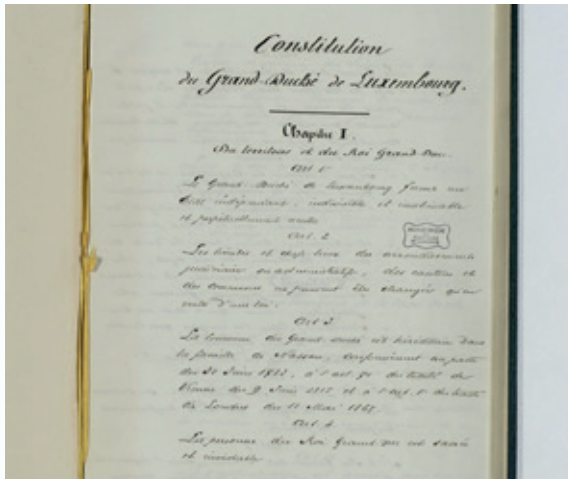 Constitution
du Grand-Duché de Luxembourg.
Chapitre I.
Du territoire et du Roi Grand-Duc.
Art. 1er
Le Grand-Duché de Luxembourg forme un
État indépendant, indivisible et inaliénable
et perpétuellement neutre
Art. 2
Les limites et chefs-lieux des arrondissements
judiciaires ou administratifs, des cantons et
des communes ne peuvent être changés qu'en
vertu d'une loi.
Art. 3
La couronne du Grand-Duché est héréditaire dans
la famille de Nassau, conformément au pacte
du 30 Juin 1783, à l'art. 71 du traité de
Vienne du 9 Juin 1815 et à l'art. 1er du traité
de Londres du 11 Mai 1867.
Art. 4
La personne du Roi Grand-Duc est sacrée
et inviolable